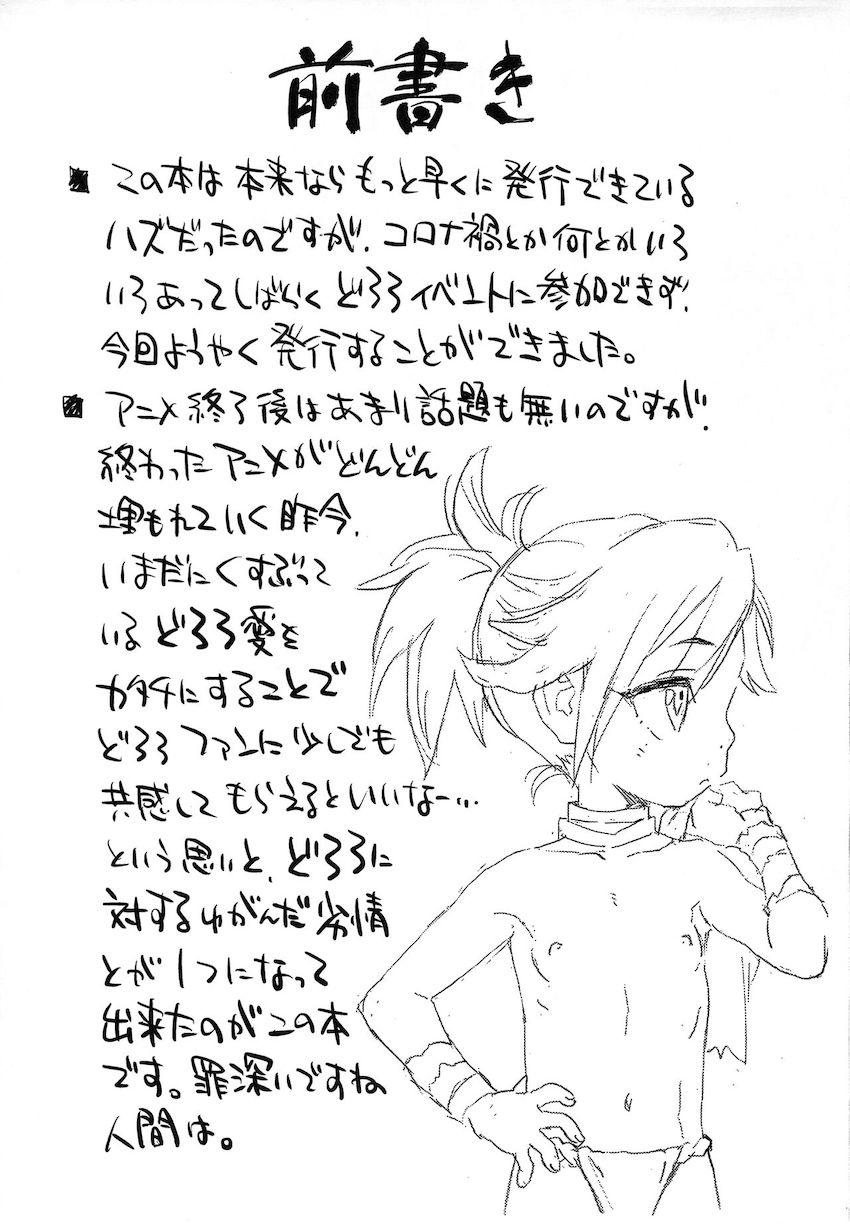 前書き
■ この本は本来ならもっと早くに発行できている
ハズだったのですが、コロナ禍とか何とかいろ
いろあってしばらくどろろイベントに参加できず、
今回ようやく発行することができました。
■ アニメ終了後はあまり話題も無いのですが、
終わったアニメがどんどん
埋もれていく昨今、
いまだにくすぶって
いるどろろ愛を
カタチにすることで
どろろファンに少しでも
共感してもらえるといいなー…
という思いと、どろろに
対するゆがんだ劣情
とが1つになって
出来たのがこの本
です。罪深いですね
人間は。